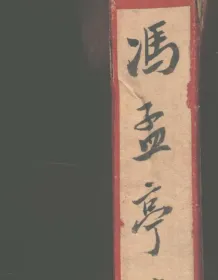 馮孟亭